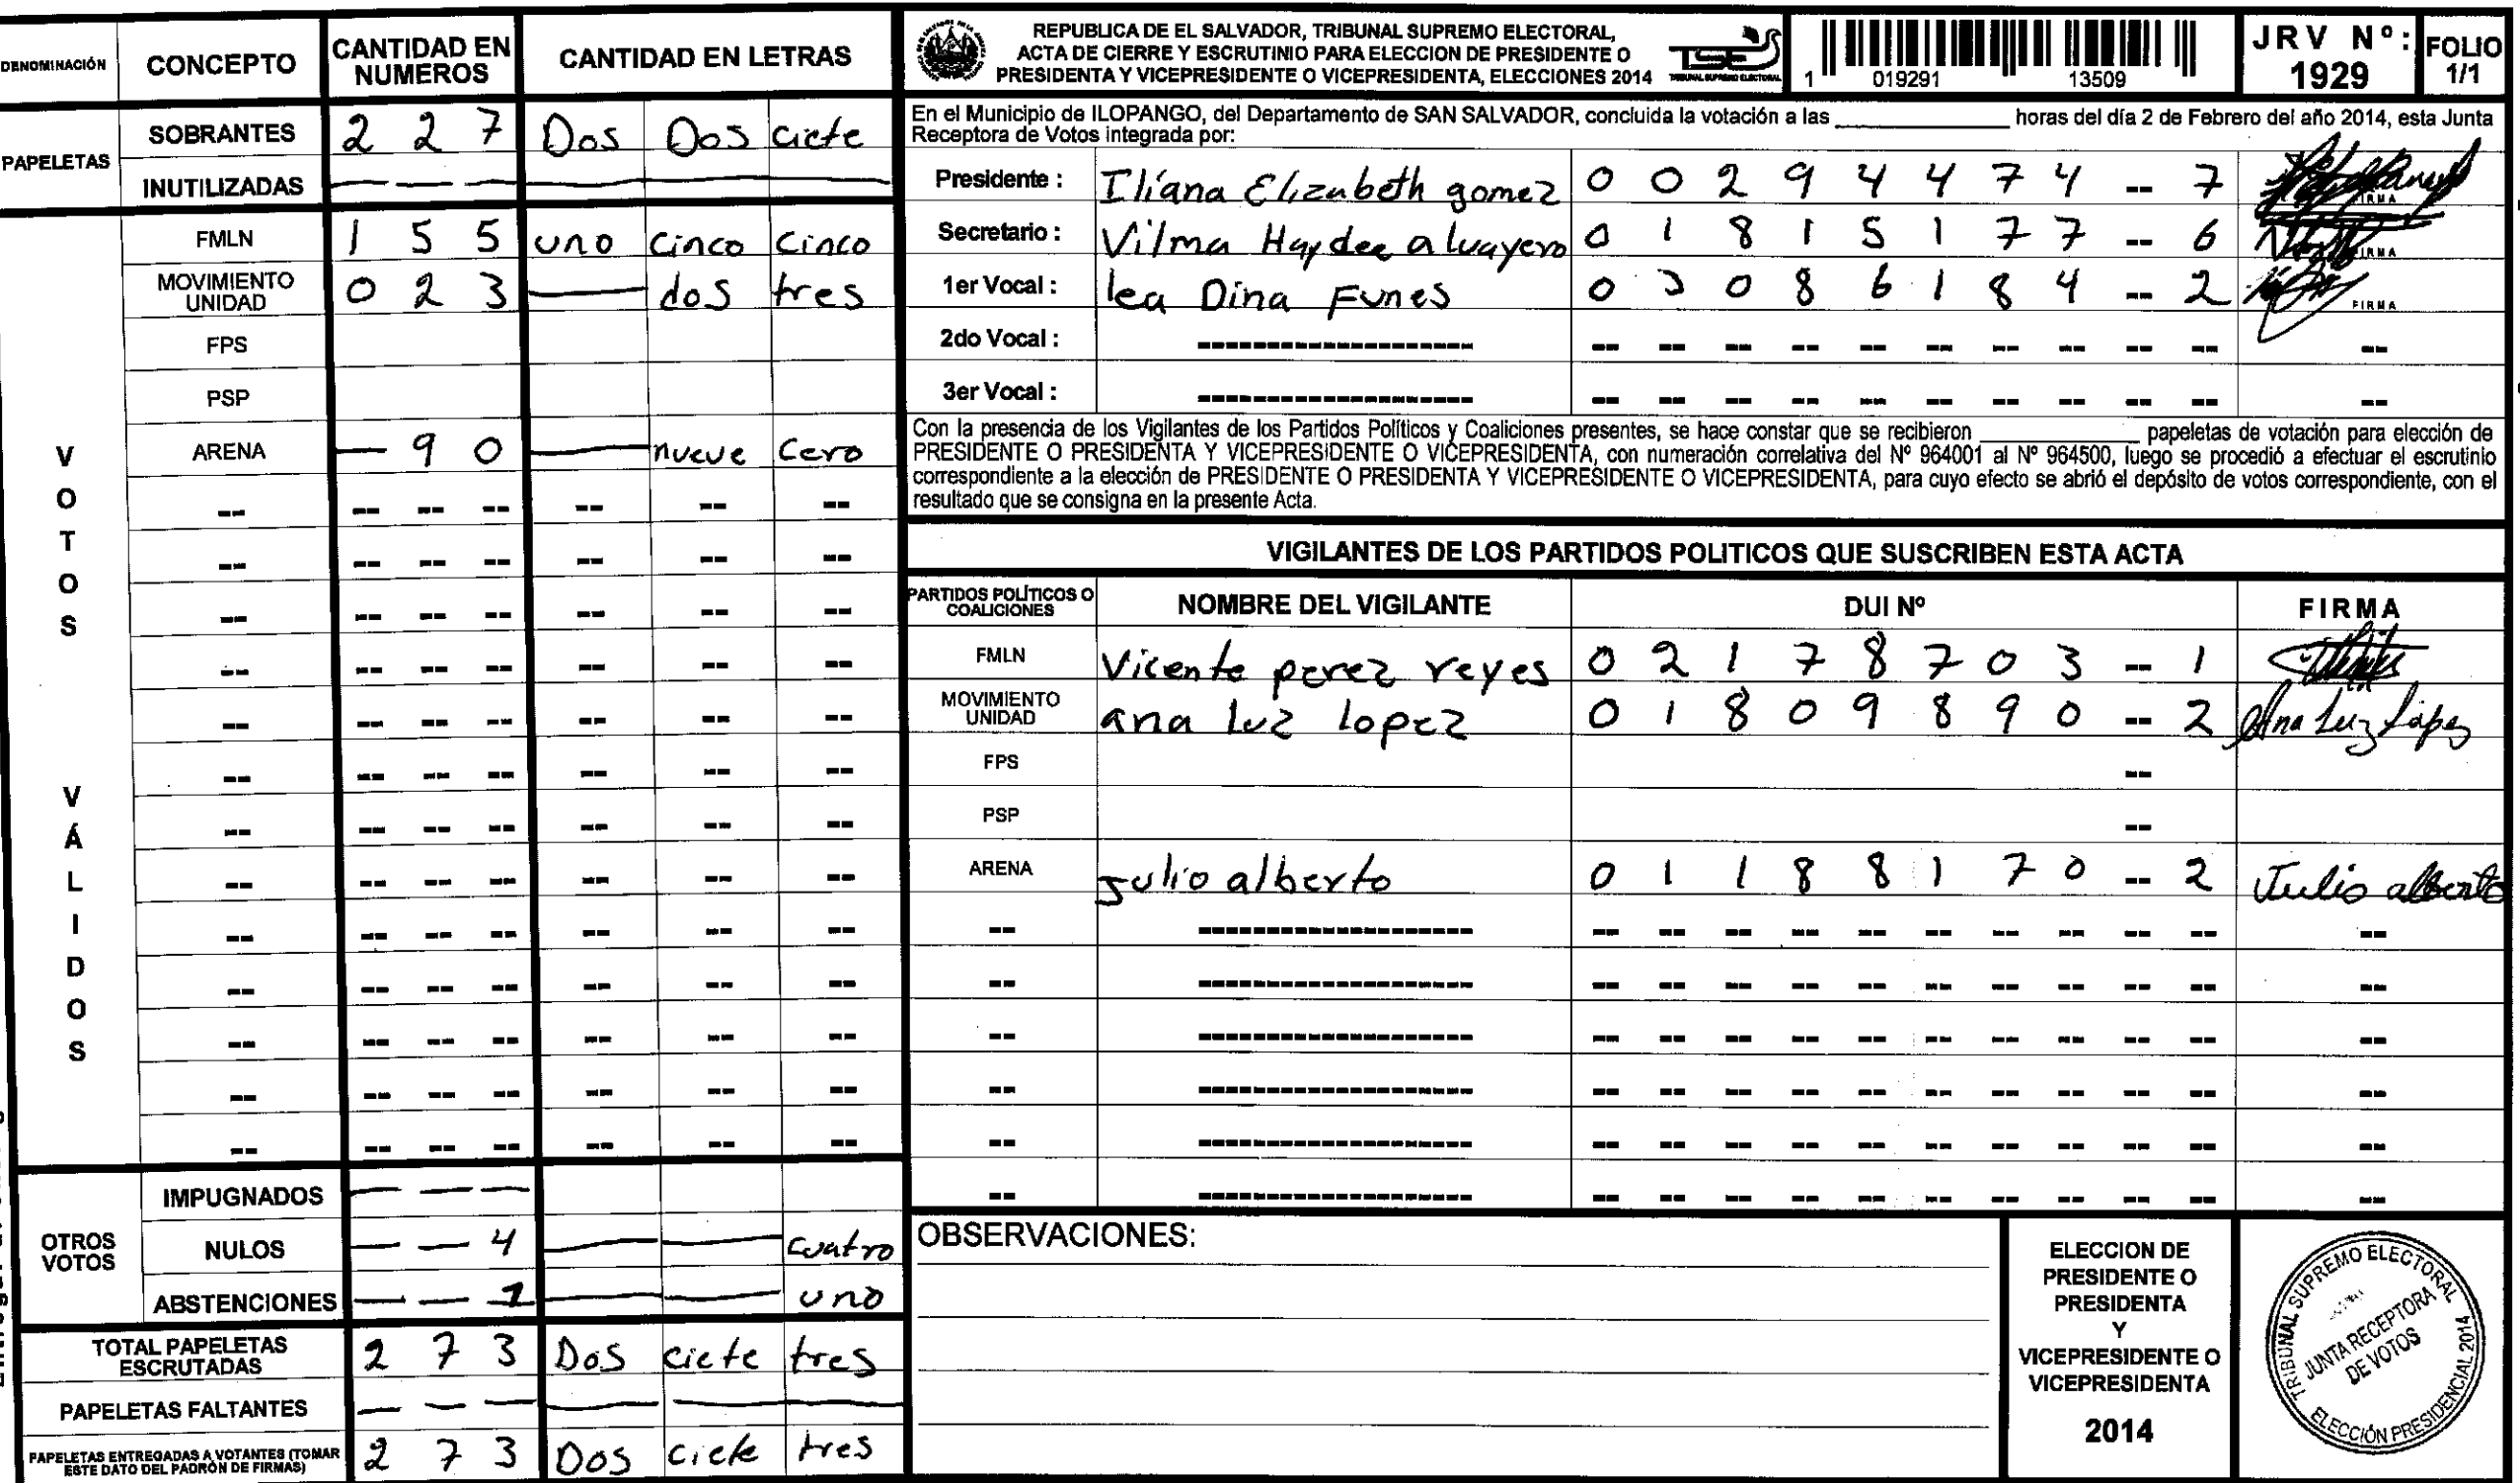 DENOMINACIÓN CONCEPTO CANTIDAD EN NUMEROS CANTIDAD EN LETRAS
PAPELETAS
SOBRANTES 2 2 7 Dos Dos ciete
INUTILIZADAS — — — — — —
VOTOS VÁLIDOS
FMLN 1 5 5 uno cinco cinco
MOVIMIENTO UNIDAD 0 2 3 — dos tres
FPS
PSP
ARENA — 9 0 — nueve cero
OTROS VOTOS
IMPUGNADOS — — —
NULOS — — 4 — — cuatro
ABSTENCIONES — — 1 — — uno
TOTAL PAPELETAS ESCRUTADAS 2 7 3 Dos ciete tres
PAPELETAS FALTANTES — — — — — —
PAPELETAS ENTREGADAS A VOTANTES (TOMAR ESTE DATO DEL PADRÓN DE FIRMAS) 2 7 3 Dos ciete tres
REPUBLICA DE EL SALVADOR, TRIBUNAL SUPREMO ELECTORAL,
ACTA DE CIERRE Y ESCRUTINIO PARA ELECCION DE PRESIDENTE O
PRESIDENTA Y VICEPRESIDENTE O VICEPRESIDENTA, ELECCIONES 2014
TSE
TRIBUNAL SUPREMO ELECTORAL
1 019291 13509
JRV Nº: 1929
FOLIO 1/1
En el Municipio de ILOPANGO, del Departamento de SAN SALVADOR, concluida la votación a las ____________ horas del día 2 de Febrero del año 2014, esta Junta
Receptora de Votos integrada por:
Presidente : Iliana Elizabeth gomez 0 0 2 9 4 4 7 4 -- 7 FIRMA
Secretario : Vilma Haydee aluayero 0 1 8 1 5 1 7 7 -- 6 FIRMA
1er Vocal : lea Dina Funes 0 3 0 8 6 1 8 4 -- 2 FIRMA
2do Vocal :
3er Vocal :
Con la presencia de los Vigilantes de los Partidos Políticos y Coaliciones presentes, se hace constar que se recibieron ____________ papeletas de votación para elección de
PRESIDENTE O PRESIDENTA Y VICEPRESIDENTE O VICEPRESIDENTA, con numeración correlativa del Nº 964001 al Nº 964500, luego se procedió a efectuar el escrutinio
correspondiente a la elección de PRESIDENTE O PRESIDENTA Y VICEPRESIDENTE O VICEPRESIDENTA, para cuyo efecto se abrió el depósito de votos correspondiente, con el
resultado que se consigna en la presente Acta.
VIGILANTES DE LOS PARTIDOS POLITICOS QUE SUSCRIBEN ESTA ACTA
PARTIDOS POLÍTICOS O COALICIONES NOMBRE DEL VIGILANTE DUI Nº FIRMA
FMLN Vicente perez reyes 0 2 1 7 8 7 0 3 -- 1
MOVIMIENTO UNIDAD ana luz lopez 0 1 8 0 9 8 9 0 -- 2 Ana Luz López
FPS --
PSP --
ARENA julio alberto 0 1 1 8 8 1 7 0 -- 2 Julio alberto
OBSERVACIONES:
ELECCION DE
PRESIDENTE O
PRESIDENTA
Y
VICEPRESIDENTE O
VICEPRESIDENTA
2014
TRIBUNAL SUPREMO ELECTORAL
JUNTA RECEPTORA
DE VOTOS
ELECCIÓN PRESIDENCIAL 2014